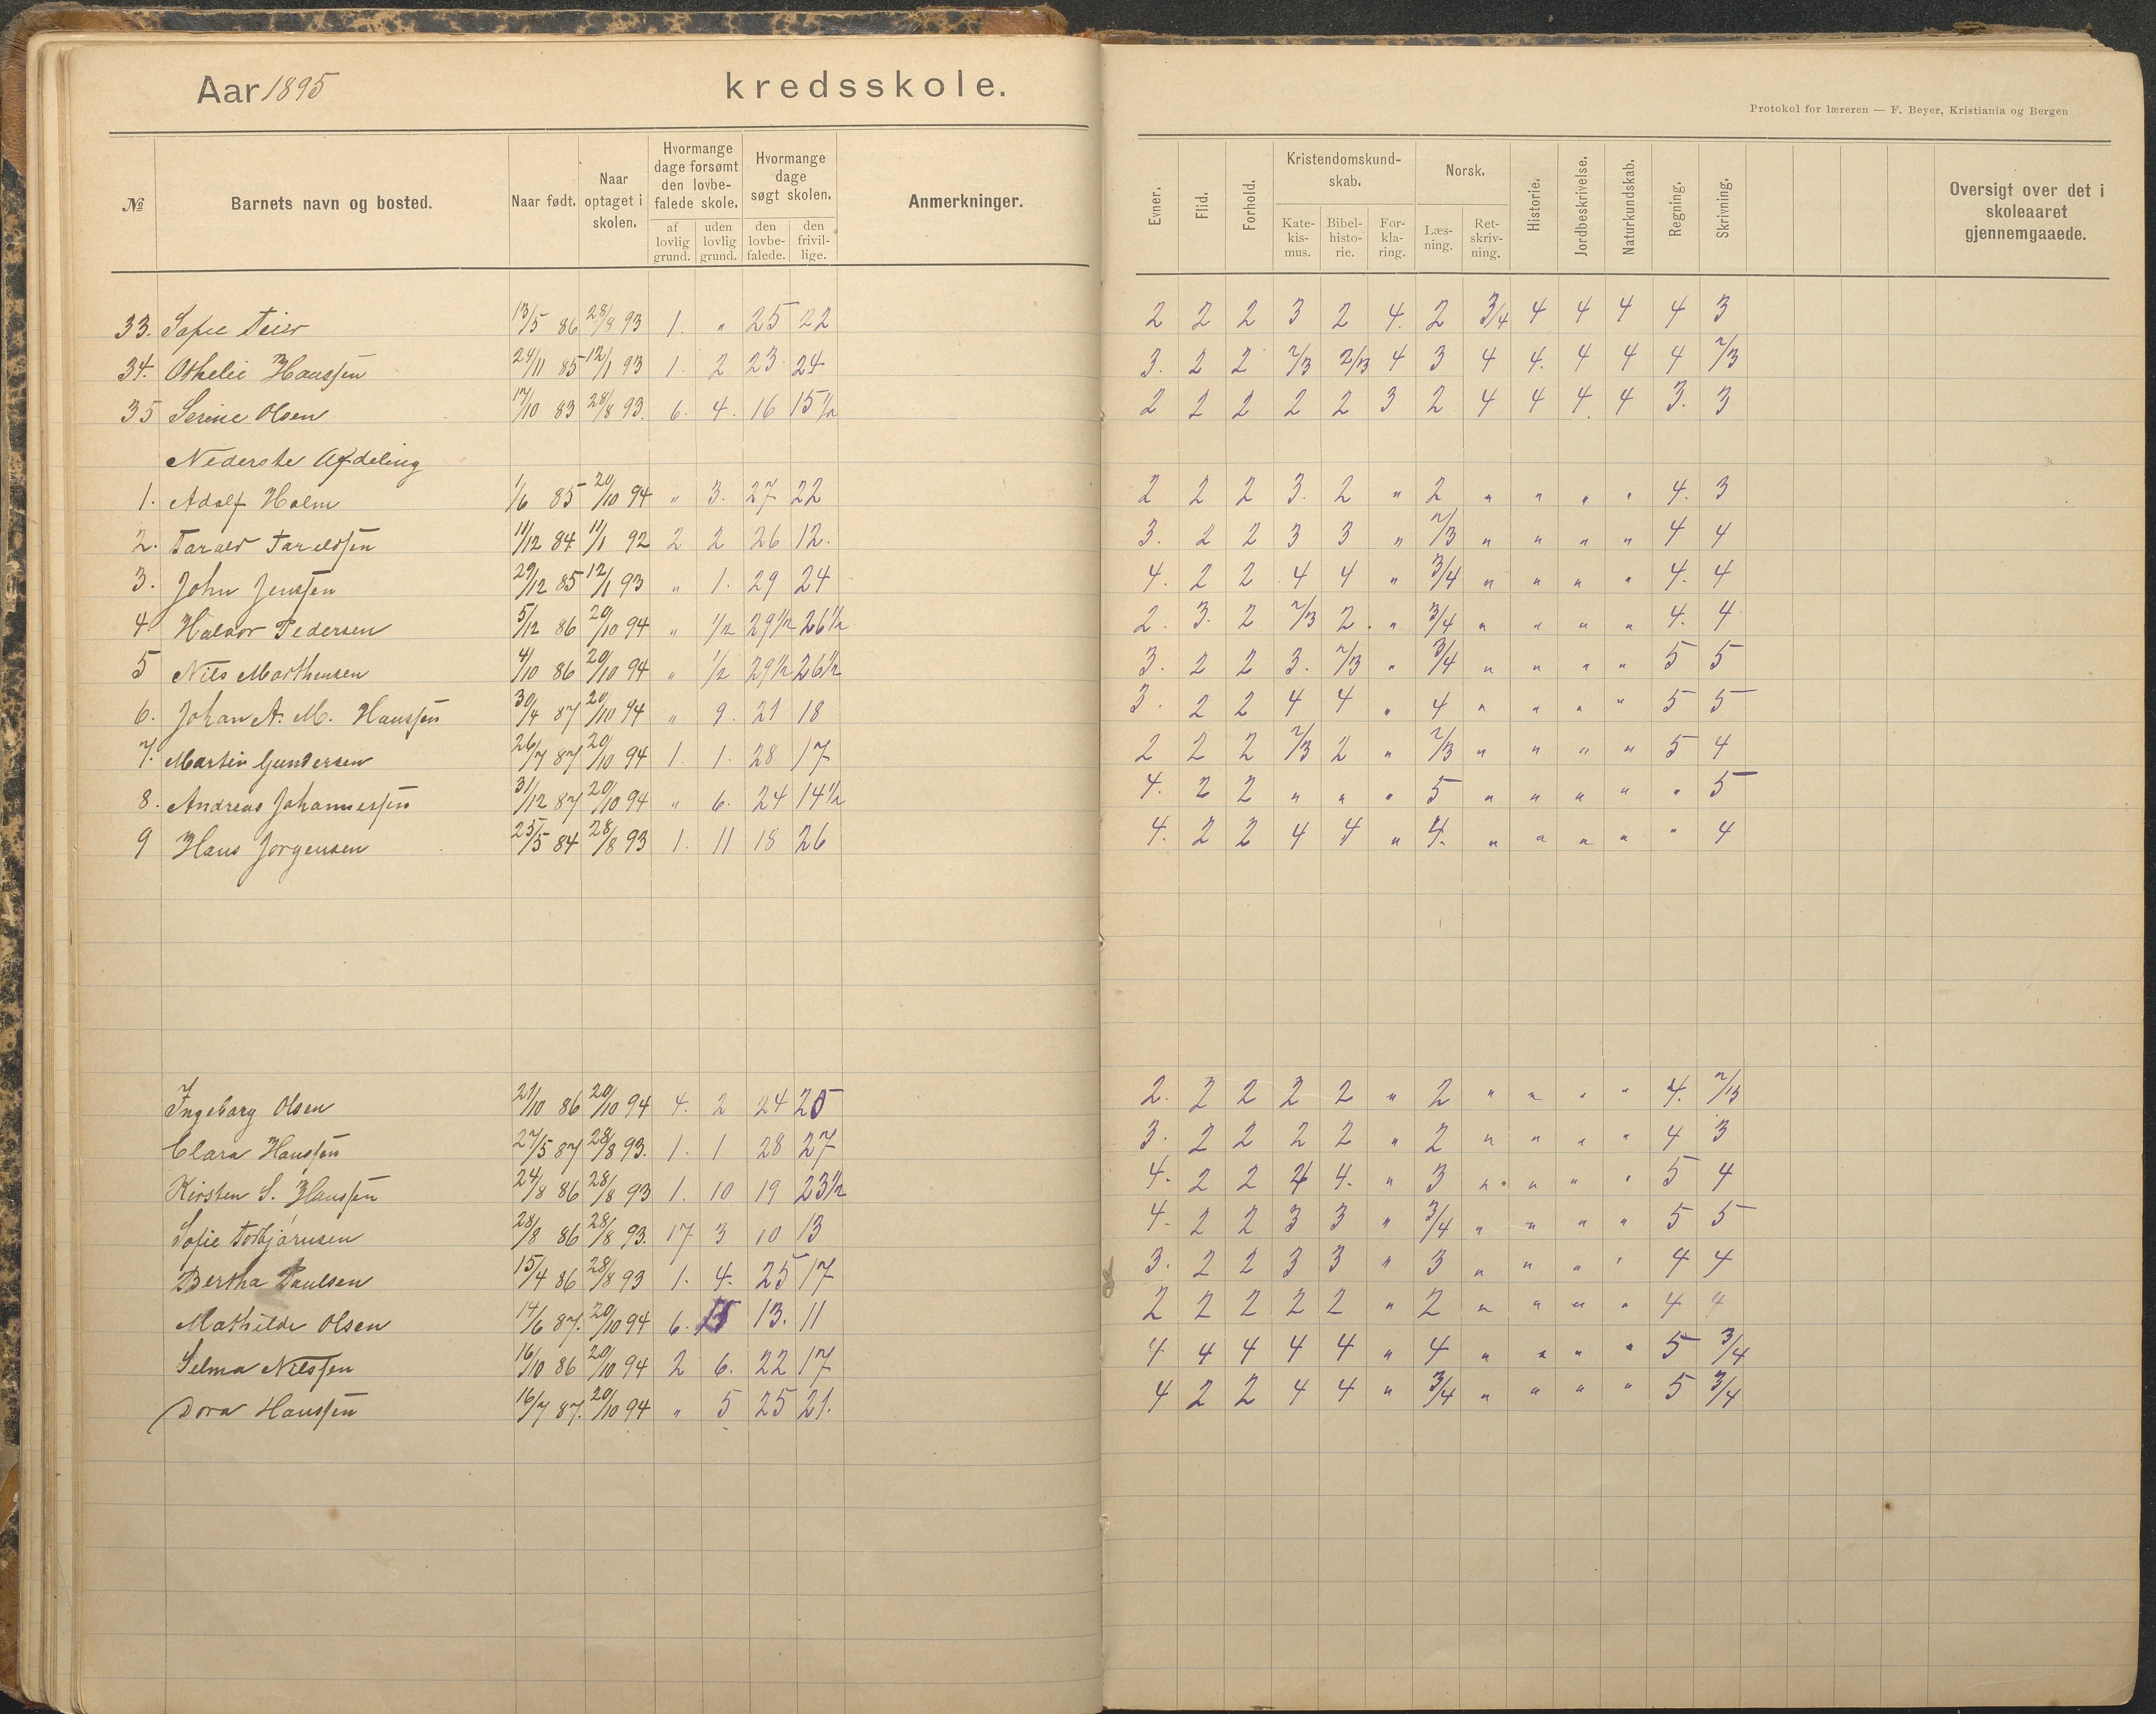 Aar 1895 kredsskole.
Protokol for læreren — F. Beyer, Kristiania og Bergen
№ Barnets navn og bosted. Naar født. Naar optaget i skolen. Hvormange dage forsømt den lovbefalede skole. af lovlig grund. uden lovlig grund. Hvormange dage søgt skolen. den lovbefalede. den frivillige. Anmerkninger. Evner. Flid. Forhold. Kristendomskundskab. Katekismus. Bibelhistorie. Forklaring. Norsk. Læsning. Retskrivning. Historie. Jordbeskrivelse. Naturkundskab. Regning. Skrivning. Oversigt over det i skoleaaret gjennemgaaede.
33. Sofie Teier 13/5 86 28/8 93 1. " 25 22 2 2 2 3 2 4. 2 3/4 4 4 4 4 3
34. Othelie Hanssen 24/11 85 12/1 93 1. 2 23 24 3. 2 2 2/3 2/3 4 3 4 4. 4 4 4 2/3
35 Serine Olsen 17/10 83 28/8 93. 6. 4. 16 15 1/2 2 2 2 2 2 3 2 4 4 4 4 3. 3
Nederste Afdeling
1. Adolf Holm 1/6 85 20/10 94 " 3. 27 22 2 2 2 3. 2 " 2 " " " " 4. 3
2. Tarald Taraldsen 11/12 84 11/1 92 2 2 26 12. 3. 2 2 3 3 " 2/3 " " " " 4 4
3. John Jenssen 29/12 85 12/1 93 " 1. 29 24 4. 2 2 4 4 " 3/4 " " " " 4. 4
4. Halvor Pedersen 5/12 86 20/10 94 " 1/2 29 1/2 26 1/2 2. 3. 2 2/3 2. " 3/4 " " " " 4. 4
5 Nils Marthensen 4/10 86 20/10 94 " 1/2 29 1/2 26 1/2 3. 2 2 3. 2/3 " 3/4 " " " " 5 5
6. Johan A. M. Hanssen 30/4 87 20/10 94 " 9. 21 18 3. 2 2 4 4 " 4 " " " " 5 5
7. Martin Gundersen 26/7 87 20/10 94 1. 1. 28 17 2 2 2 2/3 2 " 2/3 " " " " 5 4
8. Andreas Johannessen 31/12 87 20/10 94 " 6. 24 14 1/2 4. 2 2 " " " 5 " " " " " 5
9 Hans Jorgensen 25/5 84 28/8 93 1. 11 18 26 4. 2 2 4 4 " 4. " " " " " 4
Ingeborg Olsen 21/10 86 20/10 94 4. 2 24 25 2. 2 2 2 2 " 2 " " " " 4. 2/3
Clara Hanssen 27/5 87 28/8 93. 1. 1 28 27 3. 2 2 2 2 " 2 " " " " 4 3
Kirsten S. Hanssen 24/8 86 28/8 93 1. 10 19 23 1/2 4. 2 2 4 4. " 3 " " " " 5 4
Sofie Torbjørnsen 28/8 86 28/8 93. 17 3 10 13 4. 2 2 3 3 " 3/4 " " " " 5 5
Bertha Paulsen 15/4 86 28/8 93 1. 4. 25 17 3. 2 2 3 3 " 3 " " " " 4 4
Mathilde Olsen 14/6 87. 20/10 94 6. 13. 11 2 2 2 2 2 " 2 " " " " 4 4
Selma Nilssen 16/10 86 20/10 94 2 6. 22 17 4 4 4 4 4 " 4 " " " " 5 3/4
Dora Hanssen 16/7 87. 20/10 94 " 5 25 21. 4 2 2 4 4 " 3/4 " " " " 5 3/4